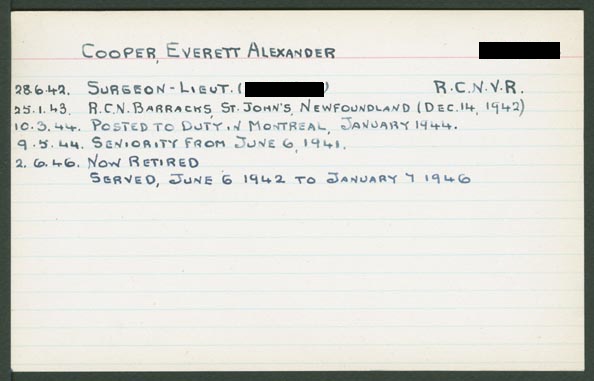 COOPER, EVERETT ALEXANDER
28.6.42. SURGEON-LIEUT. ( ) R.C.N.V.R.
25.1.43. R.C.N. BARRACKS, ST. JOHN'S, NEWFOUNDLAND (DEC. 14, 1942)
10.3.44. POSTED TO DUTY IN MONTREAL, JANUARY 1944.
9.5.44. SENIORITY FROM JUNE 6, 1941.
2.6.46. NOW RETIRED
SERVED, JUNE 6 1942 TO JANUARY 7 1946